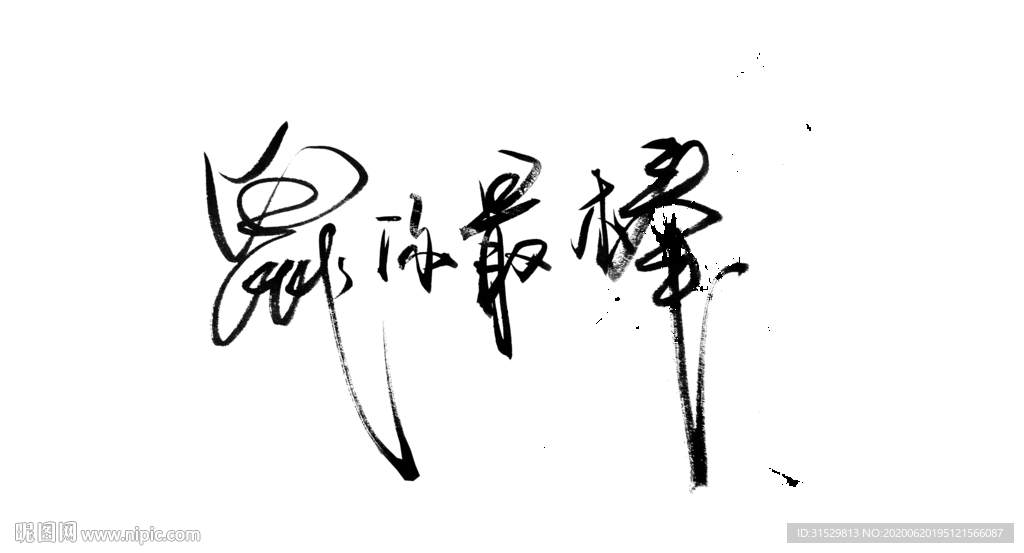 鼠你最棒
昵图网 www.nipic.com
ID:31529813 NO:20200620195121566087